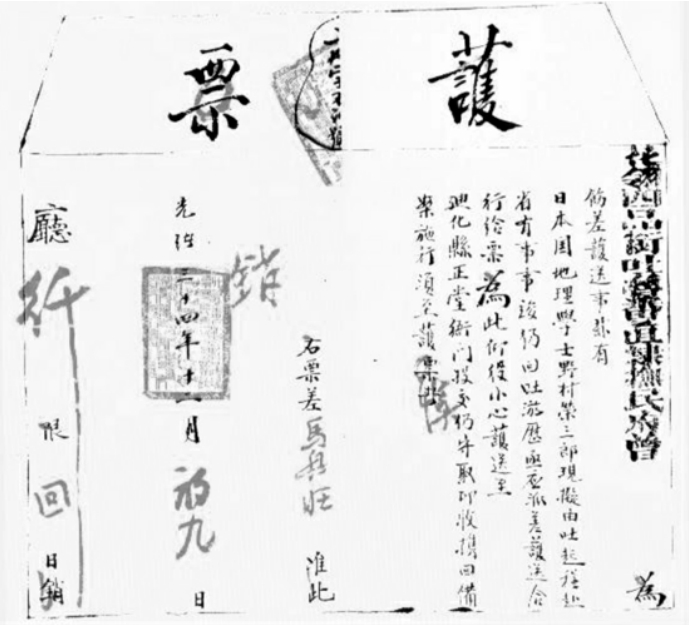 護票
為
飭差護送事茲有
日本國地理學士野村榮三郎現擬由吐起程赴
省有事事竣仍回吐游歷亟應派差護送合
行給票為此仰役小心護送至
迪化縣正堂衙門投交仍守取印收攜回備
案施行須至護票者
右票差馬興旺 准此
銷
光緒三十四年十二月初九日
廳 限 回 日銷